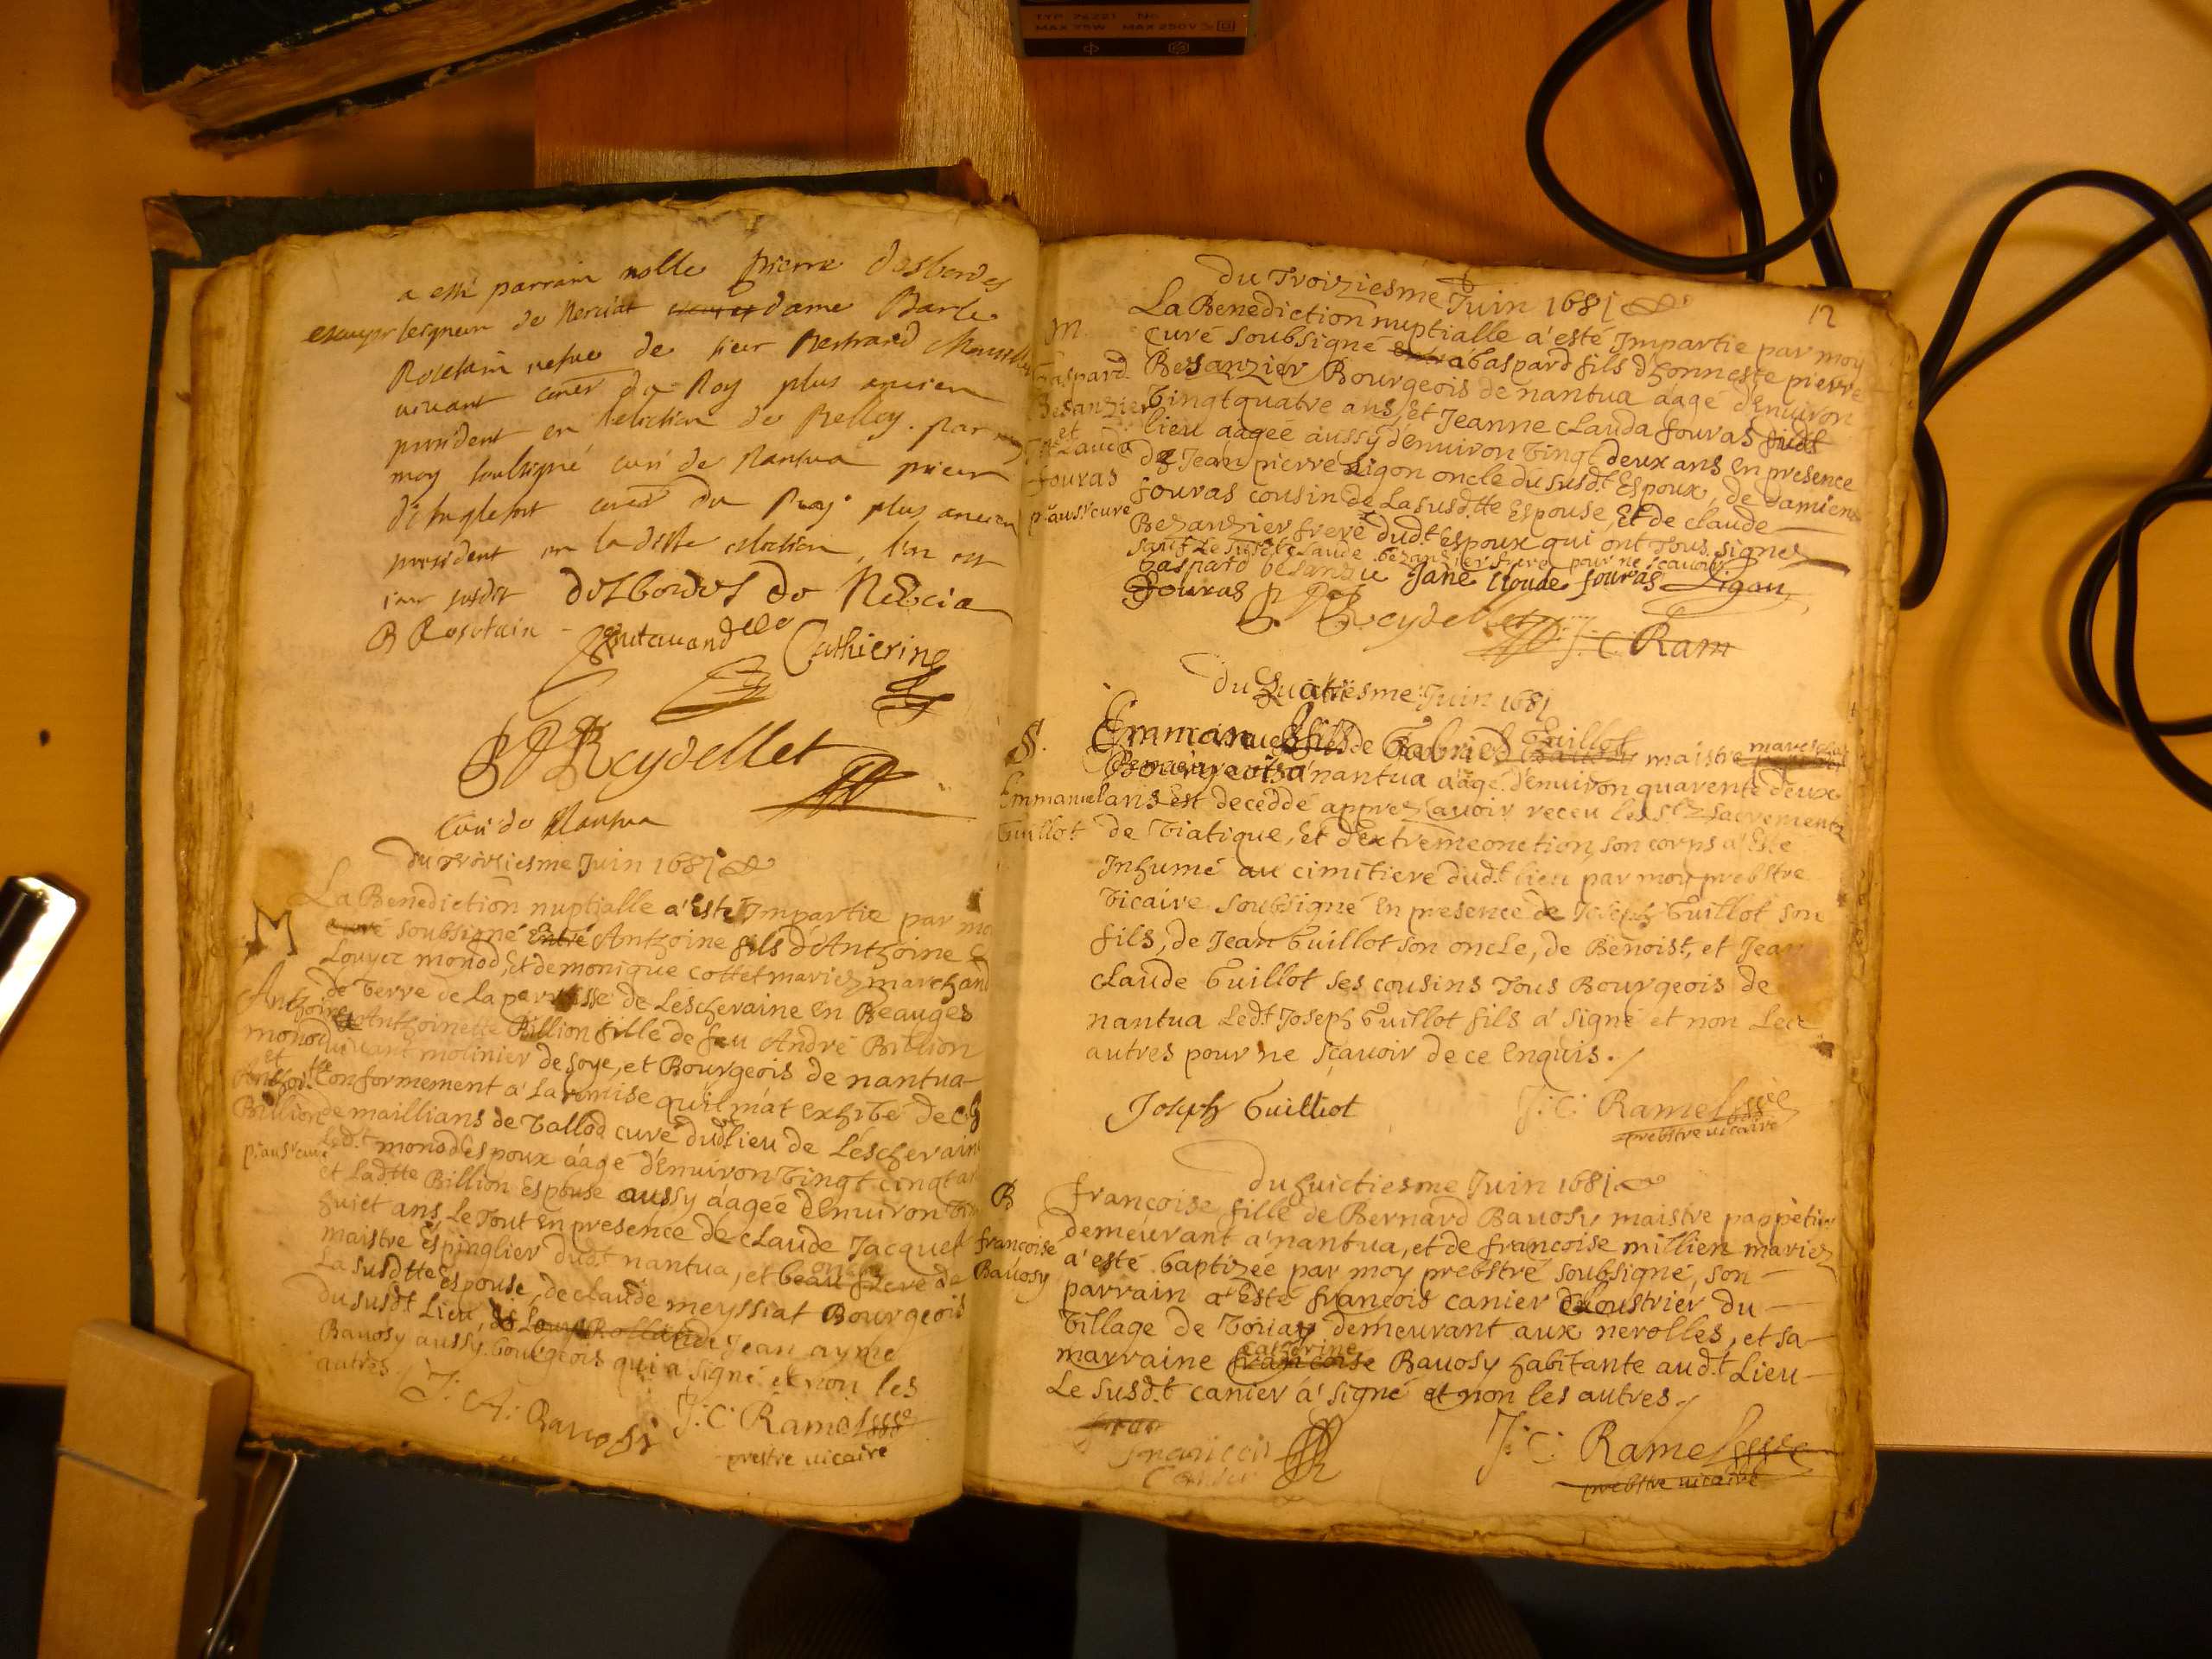 TYP 74221 No
MAX 75W MAX 250V
a esté parrain noble pierre desbordes
escuyer seigneur de Nerciat dame Barbe
Rosetain vefve de sieur Bertrand
vivant coner du Roy plus ancien
president en l'election de Belley. par
moy soubsigné curé de Nantua prieur
d'Anglefort coner du Roy plus ancien
president en laditte election, l'an et
jour susdit desbordes de Nercia
B Rosetain Catherine
Reydellet
Curé de Nantua
du Troiziesme Juin 1681
La Benediction nuptialle a'Esté Impartie par mo
curé soubsigné Entré Anthoine fils d'Anthoine
Louyer monod, Et de monique Cottet mariez marchand
de Terre de la parroisse de Lescheraine En Beauges
Et Anthoinette Billion fille de feu André Billion
vivant molinier de soye, et Bourgeois de nantua
Conformement a' La remise qu'il m'at exhibé de
de maillians de Tallod curé dudt lieu de Lescherain
Ledt monod Espoux aâgé d'Environ Vingt cinq an
et Ladtte Billion Espouse aussy aâgée d'Environ Vin
huict ans Le Tout En presence de Claude Jacquet
maistre Espinglier dudt nantua, et beau frere de
oncle
La susdtte espouse, de claude meyssiat Bourgeois
du susdt Lieu, de Louys Rolland de Jean ayme
Bavosy aussy bourgeois qui a signé et non les
autres.
J: A: Bavosi J: C: Ramel
prestre vicaire
M
Anthoine
monod
et
Anthoitte
Billion
12
du Troiziesme Juin 1681
La Benediction nuptialle a'esté Impartie par moy
curé soubsigné entre Gaspard fils d'honneste pierre
Besanzier Bourgeois de nantua aâgé d'Environ
Vingt quatre ans, Et Jeanne Clauda Jouras dudt
lieu aagée aussy d'Environ Vingt deux ans En presence
de Jean pierre Ligon oncle du susdt Espoux, de Damien
Jouras cousin de La susdtte Espouse, Et de claude
Bezanzier frere dudt espoux qui ont Tous signez
sauf Le susdt Claude bezanzier frere pour ne scavoir
Gaspard besanzie Jane Cloude Jouras Ligon
Jouras Reydellet J: C Ram
m
Gaspard
Besanzier
et
Clauda
Jouras
du Quatriesme Juin 1681
Emmanuel fils de Gabriel Guillot maistre
Bourgeois a' nantua aâgé d'environ quarente deux
ans Est deceddé apprez avoir receu les Stz Sacrementz
de Viatique, Et d'extremeonction, son corps a'Esté
Inhumé au cimitiere dudt lieu par moy prebstre
Vicaire soubsigné En presence de Joseph Guillot son
fils, de Jean Guillot son oncle, de Benoist, et Jean
claude Guillot ses cousins Tous Bourgeois de
nantua Ledt Joseph Guillot fils a' signé et non Les
autres pour ne sçavoir de ce Enquis.
Joseph Guilliot J: C: Ramel
prebstre vicaire
S.
Emmanuel
Guillot
du huictiesme Juin 1681.
francoise fille de Bernard Bavosy maistre pappetier
demeurant a'nantua, et de francoise millien mariez
a'esté baptizée par moy prebstre soubsigné, son
parrain a'Esté françois canier du
Village de demeurant aux nerolles, et sa
catherine
marraine francoise Bavosy habitante audt Lieu
Le susdt canier a' signé et non les autres.
francois
Canier
J: C: Ramel
prebstre vicaire
B
francoise
Bavosy